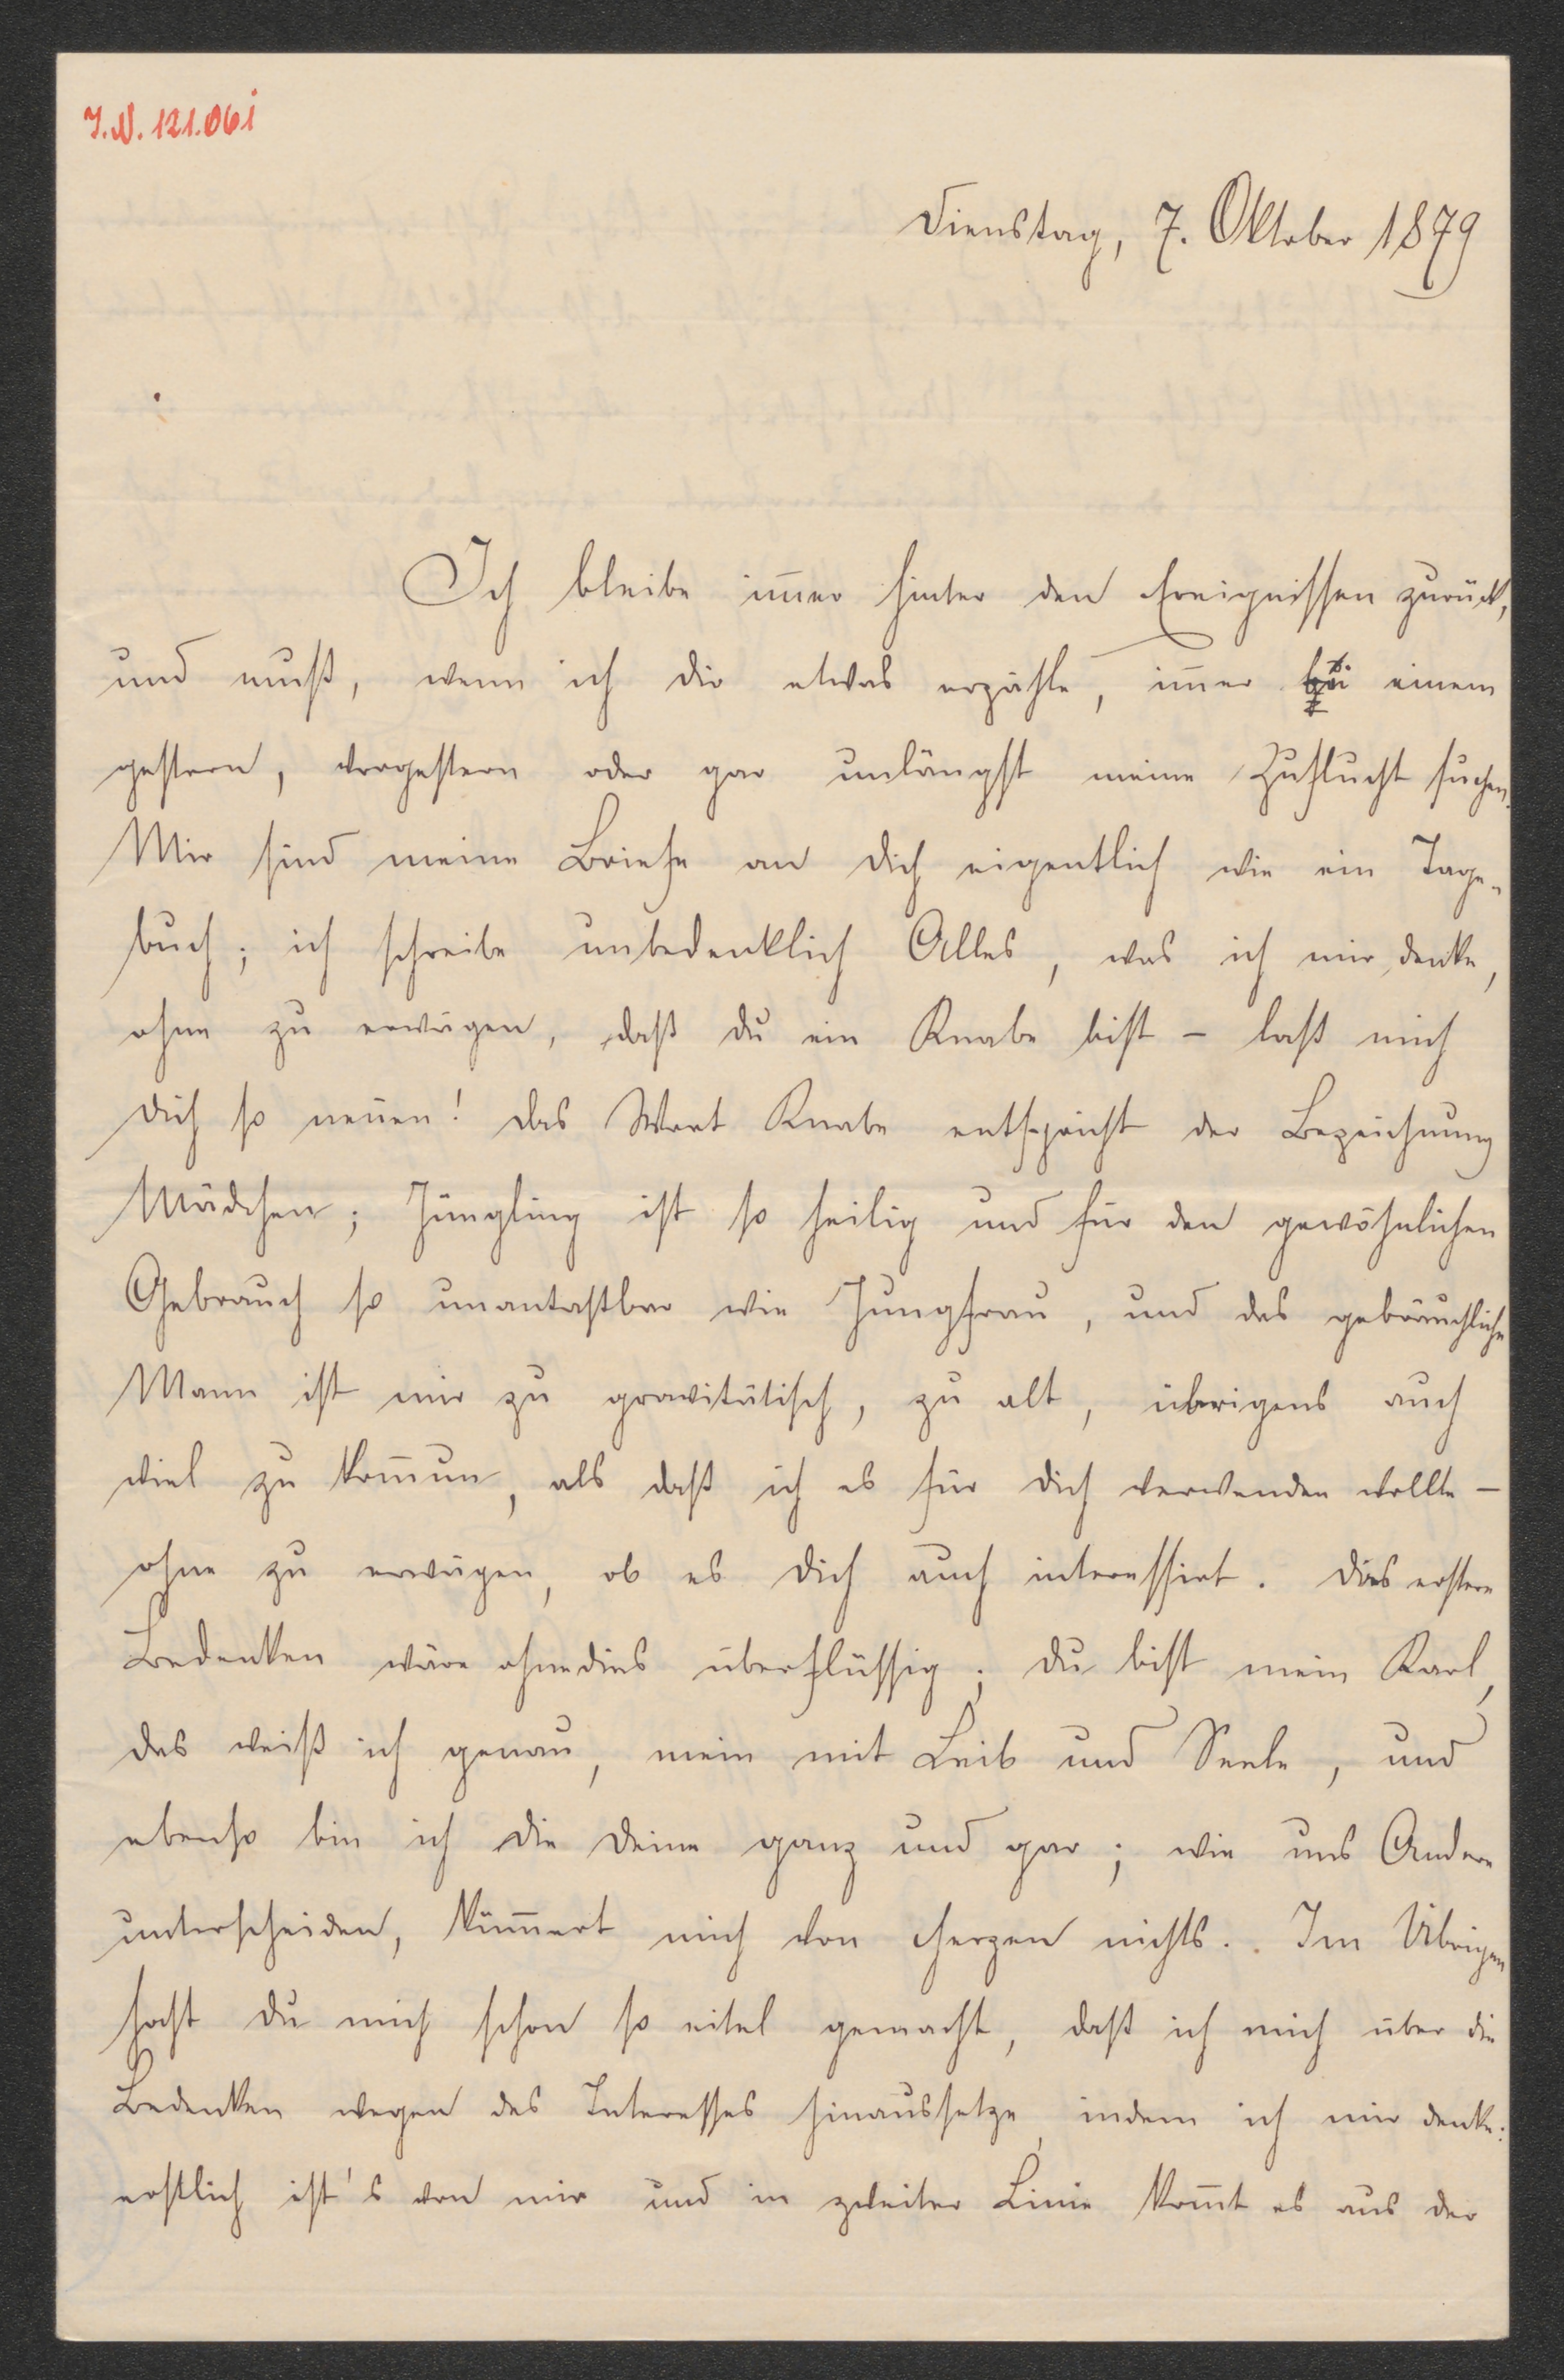 I.N. 121.061
Dienstag, 7. Oktober 1879
Ich bleibe im̄er hinter den Ereignissen zurück,
und muß, wenn ich dir etwas erzähle, im̄er einem
gestern, vorgestern oder gar unlängst meine Zuflucht suchen.
Mir sind meine Briefe an dich eigentlich wie ein Tage-
buch; ich schreibe unbedenklich Alles, was ich mir denke,
ohne zu erwägen, daß du ein Knabe bist – laß mich
dich so nen̄en! Das Wort Knabe entspricht der Bezeichnung
Mädchen; Jüngling ist so heilig und für den gewöhnlichen
Gebrauch so unantastbar wie Jungfrau, und das gebräuchliche
Mann ist mir zu gravitätisch, zu alt, übrigens auch
viel zu kom̄un, als daß ich es für dich verwenden wollte –
ohne zu erwägen, ob es dich auch interessirt. Dies erstere
Bedenken wäre ohnedies überflüssig; du bist mein Karl,
das weiß ich genau, mein mit Leib und Seele, und
ebenso bin ich die deine ganz und gar; wie uns Andere
unterscheiden, küm̄ert mich von Herzen nichts. Im Übrigen
hast du mich schon so eitel gemacht, daß ich mich über die
Bedenken wegen des Interesses hinaussetze, indem ich mir denke:
erstlich ist's von mir und in zweiter Linie kom̄t es aus der